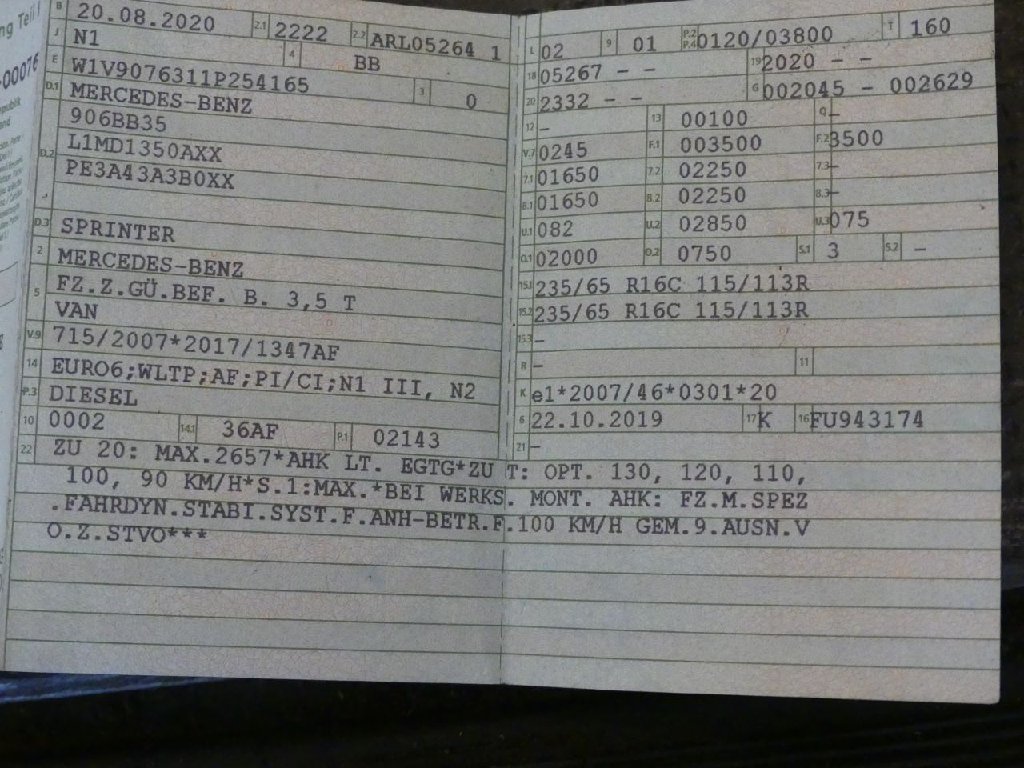 B 20.08.2020 2.1 2222 2.2 ARL05264 1
J N1 4 BB
E W1V9076311P254165 3 0
D.1 MERCEDES-BENZ
906BB35
D.2 L1MD1350AXX
PE3A43A3B0XX
D.3 SPRINTER
2 MERCEDES-BENZ
5 FZ.Z.GÜ.BEF. B. 3,5 T
VAN
V.9 715/2007*2017/1347AF
14 EURO6;WLTP;AF;PI/CI;N1 III, N2
P.3 DIESEL
10 0002 14.1 36AF P.1 02143
L 02 9 01 P.2 P.4 0120/03800 T 160
18 05267 - - 19 2020 - -
20 2332 - - G 002045 - 002629
12 - 13 00100 Q -
V.7 0245 F.1 003500 F.2 3500
7.1 01650 7.2 02250 7.3 -
8.1 01650 8.2 02250 8.3 -
U.1 082 U.2 02850 U.3 075
O.1 02000 O.2 0750 S.1 3 S.2 -
15.1 235/65 R16C 115/113R
15.2 235/65 R16C 115/113R
15.3 -
R - 11
K e1*2007/46*0301*20
6 22.10.2019 17 K 16 FU943174
21 -
22 ZU 20: MAX.2657*AHK LT. EGTG*ZU T: OPT. 130, 120, 110,
100, 90 KM/H*S.1:MAX.*BEI WERKS. MONT. AHK: FZ.M.SPEZ
.FAHRDYN.STABI.SYST.F.ANH-BETR.F.100 KM/H GEM.9.AUSN.V
O.Z.STVO***